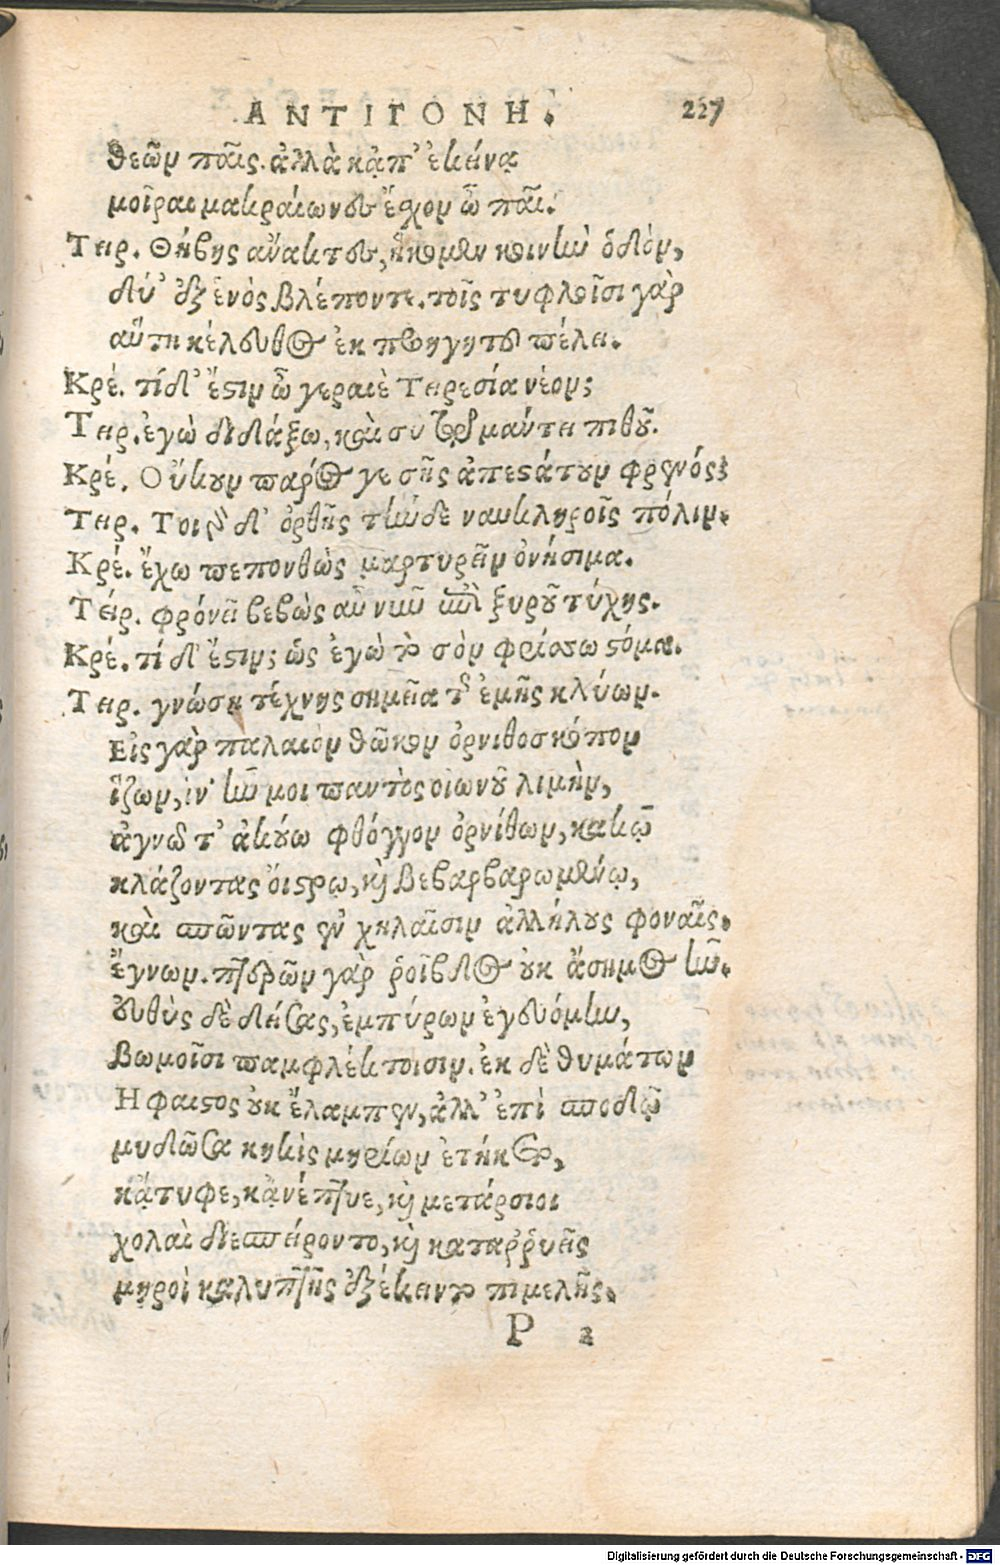 ΑΝΤΙΓΟΝΗ. 227
θεῶν παῖς. ἀλλὰ κᾀπ' ἐκείνᾳ
μοῖραι μακραίωνες ἔχον ὦ παῖ.
Τειρ. Θήβης ἄνακτες, ἥκομεν κοινὴν ὁδὸν,
δύ' ἐξ ἑνὸς βλέποντε. τοῖς τυφλοῖσι γὰρ
αὕτη κέλευθος ἐκ προηγητοῦ πέλει.
Κρέ. τί δ' ἔστιν ὦ γεραιὲ Τειρεσία νέον;
Τειρ. ἐγὼ διδάξω, καὶ συ τῷ μάντει πιθοῦ.
Κρέ. Οὔκουν πάρος γε σῆς ἀπεστάτουν φρενός;
Τειρ. Τοιγὰρ δι' ὀρθῆς τήνδε ναυκληροῖς πόλιν.
Κρέ. ἔχω πεπονθὼς μαρτυρεῖν ὀνήσιμα.
Τείρ. φρόνει βεβὼς αὖ νῦν ἐπὶ ξυροῦ τύχης.
Κρέ. τί δ' ἔστιν; ὡς ἐγὼ τὸ σὸν φρίσσω στόμα.
Τειρ. γνώσῃ τέχνης σημεῖα τῆς ἐμῆς κλύων.
Εἰς γὰρ παλαιὸν θῶκον ὀρνιθοσκόπον
ἵζων, ἵν' ἦν μοι παντὸς οἰωνοῦ λιμὴν,
ἀγνῶτ' ἀκούω φθόγγον ὀρνίθων, κακῷ
κλάζοντας οἴστρῳ, καὶ βεβαρβαρωμένῳ,
καὶ σπῶντας ἐν χηλαῖσιν ἀλλήλους φοναῖς.
ἔγνων. πτερῶν γὰρ ῥοῖβδος οὐκ ἄσημος ἦν.
εὐθὺς δὲ δείσας, ἐμπύρων ἐγευόμην,
βωμοῖσι παμφλέκτοισιν. ἐκ δὲ θυμάτων
Ηφαιστος οὐκ ἔλαμπεν, ἀλλ' ἐπὶ σποδῷ
μυδῶσα κηκὶς μηρίων ἐτήκετο,
κᾄτυφε, κᾀνέπτυε, καὶ μετάρσιοι
χολαὶ διεσπείροντο, καὶ καταῤῥυεῖς
μηροὶ καλυπτῆς ἐξέκειντο πιμελῆς.
P 2
Digitalisierung gefördert durch die Deutsche Forschungsgemeinschaft - DFG